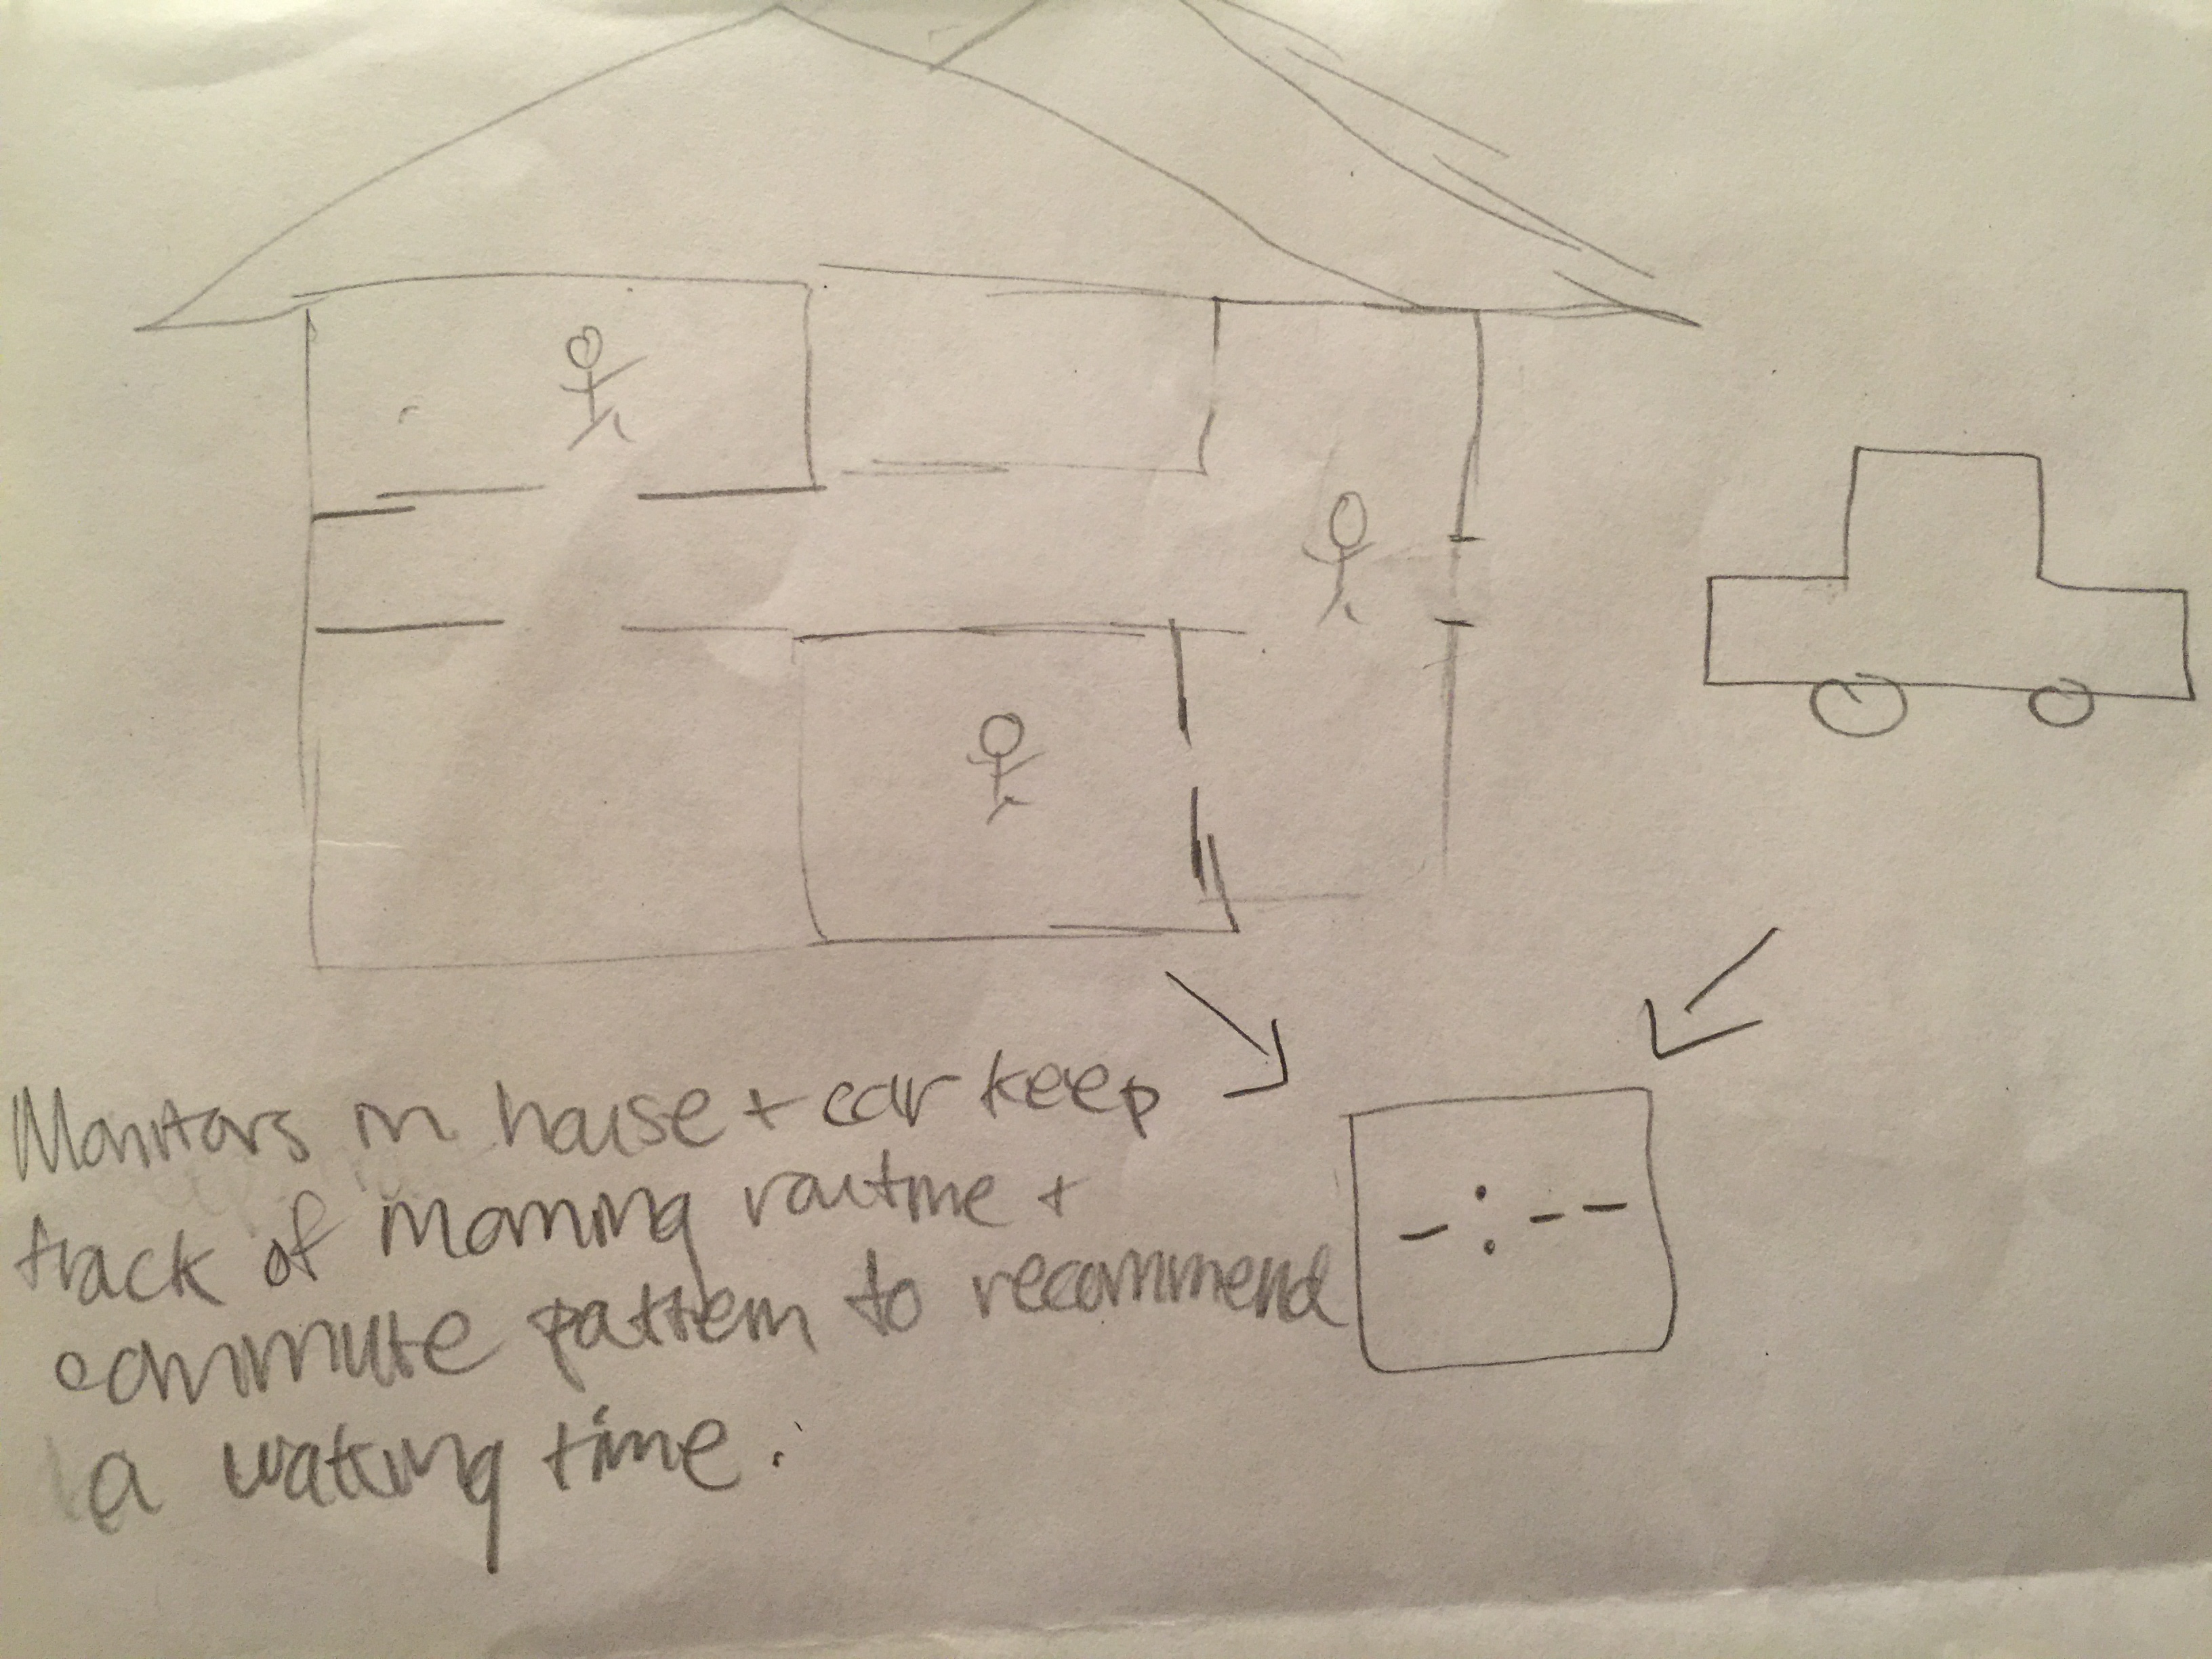 Monitors in house + car keep
track of morning routine +
commute pattern to recommend
a waking time.
-:--